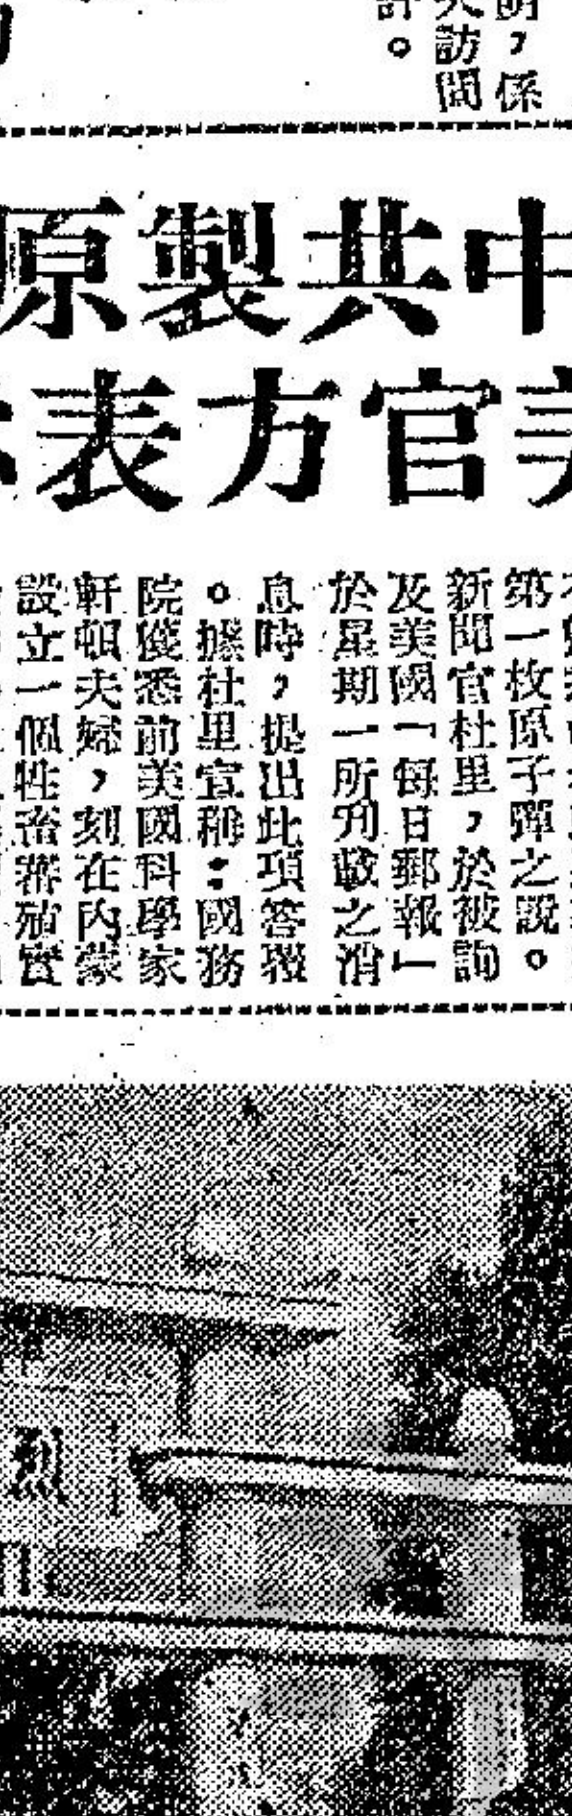 ，係
訪問
。
中共製原
美官方表
第一枚原子彈之說。
新聞官杜里，於被詢
及美國「每日郵報」
於星期一所刊載之消
息時，提出此項答覆
。據杜里宣稱：國務
院獲悉前美國科學家
軒頓夫婦，刻在內蒙
設立一個牲畜蕃殖實
烈